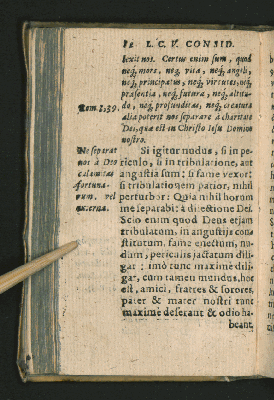 12 L. C. V. CONSID.
lexit nos. Certus enim sum, quod
neq; mors, neq; vita, neq; angeli,
neq; principatus, neq; virtutes, neq;
præsentia, neq; futura, neq; altitu-
Rom. 8, 39.
do, neq; profunditas, neq; creatura
alia poterit nos separare à charitate
Dei, quæ est in Christo Iesu Domino
nostro.
Ne separet
nos à Deo
calamitas
aut
fortuna-
rum, vel
Si igitur nudus, si in pe-
riculo, si in tribulatione, aut
angustia sum; si fame vexor:
si tribulationem patior, nihil
perturbor: Quia nihil horum
me separabit à dilectione Dei.
Scio enim quod Deus etiam
tribulatum, in angustijs con-
stitutum, fame enectum, nu-
dum, periculis jactatum dili-
gat: imò tunc maximè dili-
gat, cum tamen mundus, hoc
est, amici, fratres & sorores,
pater & mater nostri tunc
maximè deserant & odio ha-
beant